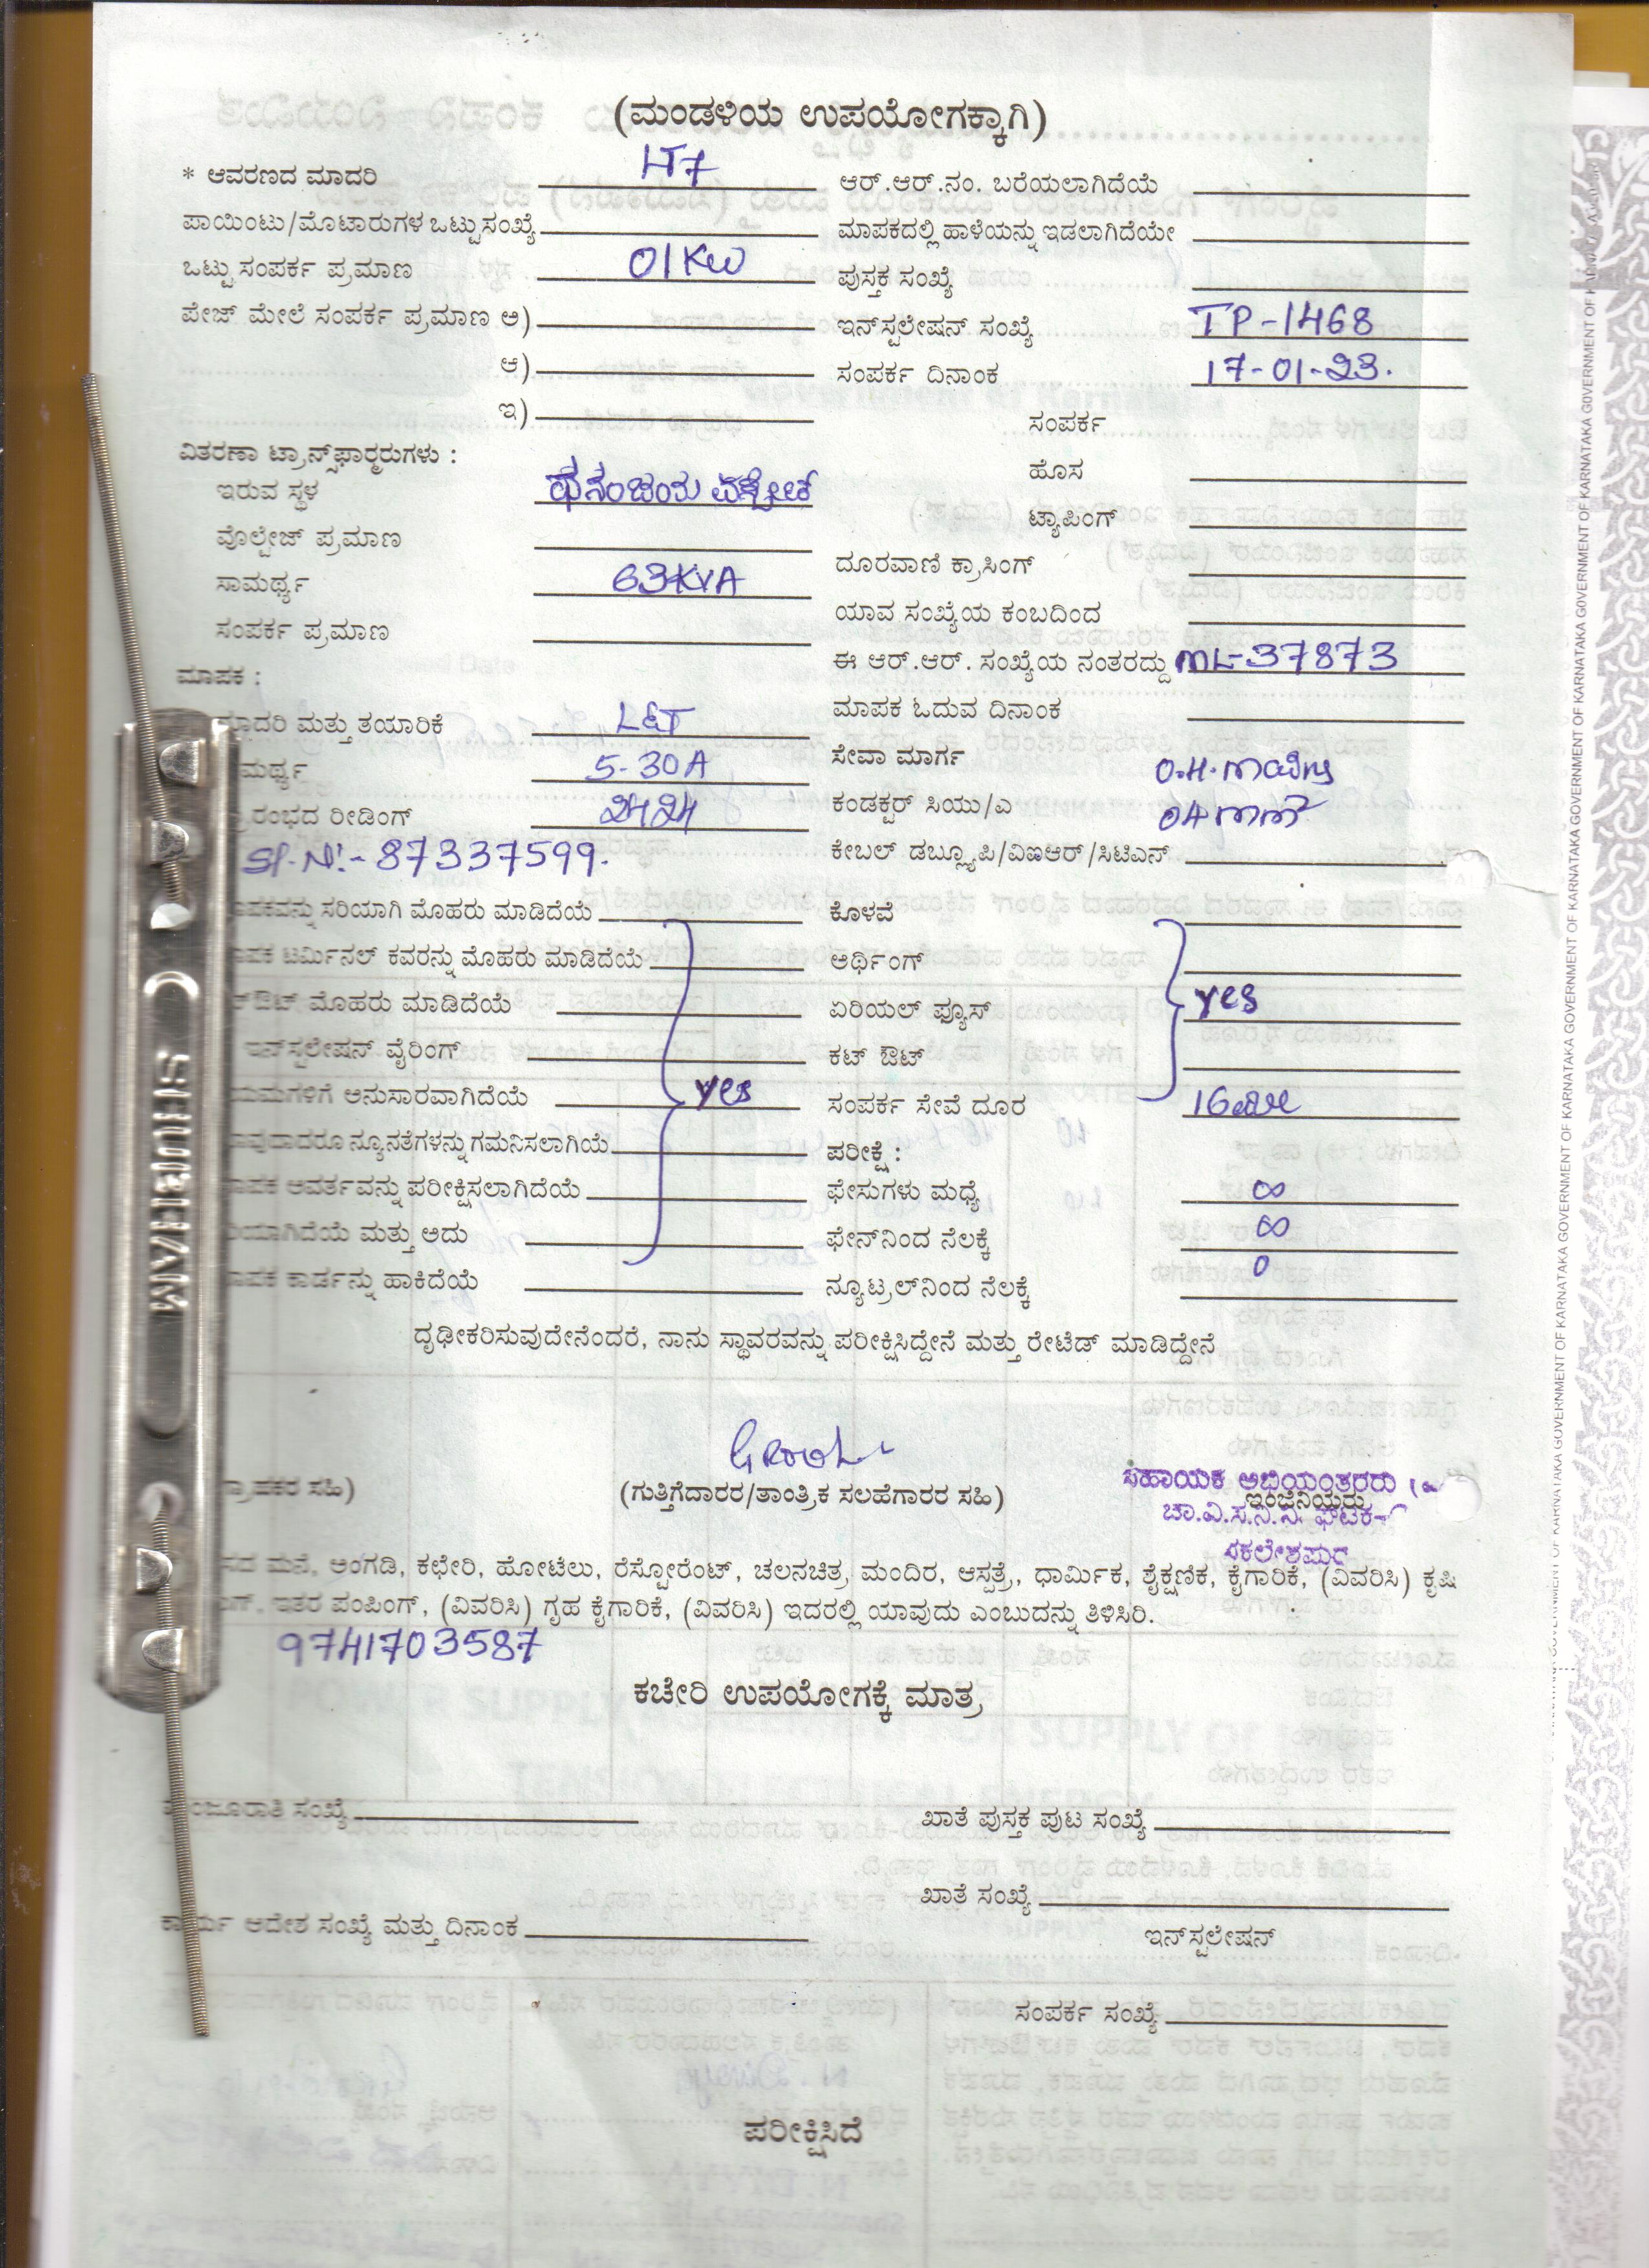 (ಮಂಡಳಿಯ ಉಪಯೋಗಕ್ಕಾಗಿ)
* ಆವರಣದ ಮಾದರಿ LT7 ಆರ್.ಆರ್.ನಂ. ಬರೆಯಲಾಗಿದೆಯೆ
ಪಾಯಿಂಟು/ಮೊಟಾರುಗಳ ಒಟ್ಟು ಸಂಖ್ಯೆ ಮಾಪಕದಲ್ಲಿ ಹಾಳೆಯನ್ನು ಇಡಲಾಗಿದೆಯೇ
ಒಟ್ಟು ಸಂಪರ್ಕ ಪ್ರಮಾಣ 01KW ಪುಸ್ತಕ ಸಂಖ್ಯೆ
ಪೇಜ್ ಮೇಲೆ ಸಂಪರ್ಕ ಪ್ರಮಾಣ ಅ) ಇನ್‌ಸ್ಟಲೇಷನ್ ಸಂಖ್ಯೆ TP-1468
ಆ) ಸಂಪರ್ಕ ದಿನಾಂಕ 17-01-23.
ಇ) ಸಂಪರ್ಕ
ವಿತರಣಾ ಟ್ರಾನ್ಸ್‌ಫಾರ್ಮರುಗಳು : ಹೊಸ
ಇರುವ ಸ್ಥಳ ಧನಂಜಯ ಟ್ಯಾಪಿಂಗ್
ವೊಲ್ಟೇಜ್ ಪ್ರಮಾಣ ದೂರವಾಣಿ ಕ್ರಾಸಿಂಗ್
ಸಾಮರ್ಥ್ಯ 63KVA ಯಾವ ಸಂಖ್ಯೆಯ ಕಂಬದಿಂದ
ಸಂಪರ್ಕ ಪ್ರಮಾಣ ಈ ಆರ್.ಆರ್. ಸಂಖ್ಯೆಯ ನಂತರದ್ದು ML-37873
ಮಾಪಕ : ಮಾಪಕ ಓದುವ ದಿನಾಂಕ
ಮಾದರಿ ಮತ್ತು ತಯಾರಿಕೆ L&T ಸೇವಾ ಮಾರ್ಗ O.H.
ಮರ್ಥ್ಯ 5-30A ಕಂಡಕ್ಟರ್ ಸಿಯು/ಎ 04mm²
ರಂಭದ ರೀಡಿಂಗ್ 2424 ಕೇಬಲ್ ಡಬ್ಲ್ಯೂಪಿ/ವಿಐಆರ್/ಸಿಟಿಎನ್
Sl.No:- 87337599.
ಪಕವನ್ನು ಸರಿಯಾಗಿ ಮೊಹರು ಮಾಡಿದೆಯೆ ಕೊಳವೆ
ಪಕ ಟರ್ಮಿನಲ್ ಕವರನ್ನು ಮೊಹರು ಮಾಡಿದೆಯೆ ಅರ್ಥಿಂಗ್
ಔಟ್ ಮೊಹರು ಮಾಡಿದೆಯೆ ಏರಿಯಲ್ ಫ್ಯೂಸ್ yes
ಇನ್‌ಸ್ಟಲೇಷನ್ ವೈರಿಂಗ್ ಕಟ್ ಔಟ್
ಯಮಗಳಿಗೆ ಅನುಸಾರವಾಗಿದೆಯೆ yes ಸಂಪರ್ಕ ಸೇವೆ ದೂರ
ವುದಾದರೂ ನ್ಯೂನತೆಗಳನ್ನು ಗಮನಿಸಲಾಗಿಯೆ ಪರೀಕ್ಷೆ :
ಪಕ ಆವರ್ತವನ್ನು ಪರೀಕ್ಷಿಸಲಾಗಿದೆಯೆ ಫೇಸುಗಳು ಮಧ್ಯೆ ∞
ಯಾಗಿದೆಯೆ ಮತ್ತು ಅದು ಫೇನ್‌ನಿಂದ ನೆಲಕ್ಕೆ ∞
ಪಕ ಕಾರ್ಡನ್ನು ಹಾಕಿದೆಯೆ ನ್ಯೂಟ್ರಲ್‌ನಿಂದ ನೆಲಕ್ಕೆ 0
ದೃಢೀಕರಿಸುವುದೇನೆಂದರೆ, ನಾನು ಸ್ಥಾವರವನ್ನು ಪರೀಕ್ಷಿಸಿದ್ದೇನೆ ಮತ್ತು ರೇಟೆಡ್ ಮಾಡಿದ್ದೇನೆ
ಸಹಾಯಕ ಅಭಿಯಂತರರು
ಗ್ರಾಹಕರ ಸಹಿ) (ಗುತ್ತಿಗೆದಾರರ/ತಾಂತ್ರಿಕ ಸಲಹೆಗಾರರ ಸಹಿ) ಇಂಜಿನಿಯರು
ಚಾ.ವಿ.ಸ.ನಿ.ನಿ. ಘಟಕ-
ಸಕಲೇಶಪುರ
ಸದ ಮನೆ, ಅಂಗಡಿ, ಕಛೇರಿ, ಹೋಟೆಲು, ರೆಸ್ಟೋರೆಂಟ್, ಚಲನಚಿತ್ರ, ಮಂದಿರ, ಆಸ್ಪತ್ರೆ, ಧಾರ್ಮಿಕ, ಶೈಕ್ಷಣಿಕ, ಕೈಗಾರಿಕೆ, (ವಿವರಿಸಿ) ಕೃಷಿ
ಗ್, ಇತರ ಪಂಪಿಂಗ್, (ವಿವರಿಸಿ) ಗೃಹ ಕೈಗಾರಿಕೆ, (ವಿವರಿಸಿ) ಇದರಲ್ಲಿ ಯಾವುದು ಎಂಬುದನ್ನು ತಿಳಿಸಿರಿ.
9741703587
ಕಚೇರಿ ಉಪಯೋಗಕ್ಕೆ ಮಾತ್ರ
ಮಂಜೂರಾತಿ ಸಂಖ್ಯೆ ಖಾತೆ ಪುಸ್ತಕ ಪುಟ ಸಂಖ್ಯೆ
ಖಾತೆ ಸಂಖ್ಯೆ
ಕಾರ್ಯ ಆದೇಶ ಸಂಖ್ಯೆ ಮತ್ತು ದಿನಾಂಕ ಇನ್‌ಸ್ಟಲೇಷನ್
ಸಂಪರ್ಕ ಸಂಖ್ಯೆ
ಪರೀಕ್ಷಿಸಿದೆ
SHUBHAM
GOVERNMENT OF KARNATAKA GOVERNMENT OF KARNATAKA GOVERNMENT OF KARNATAKA